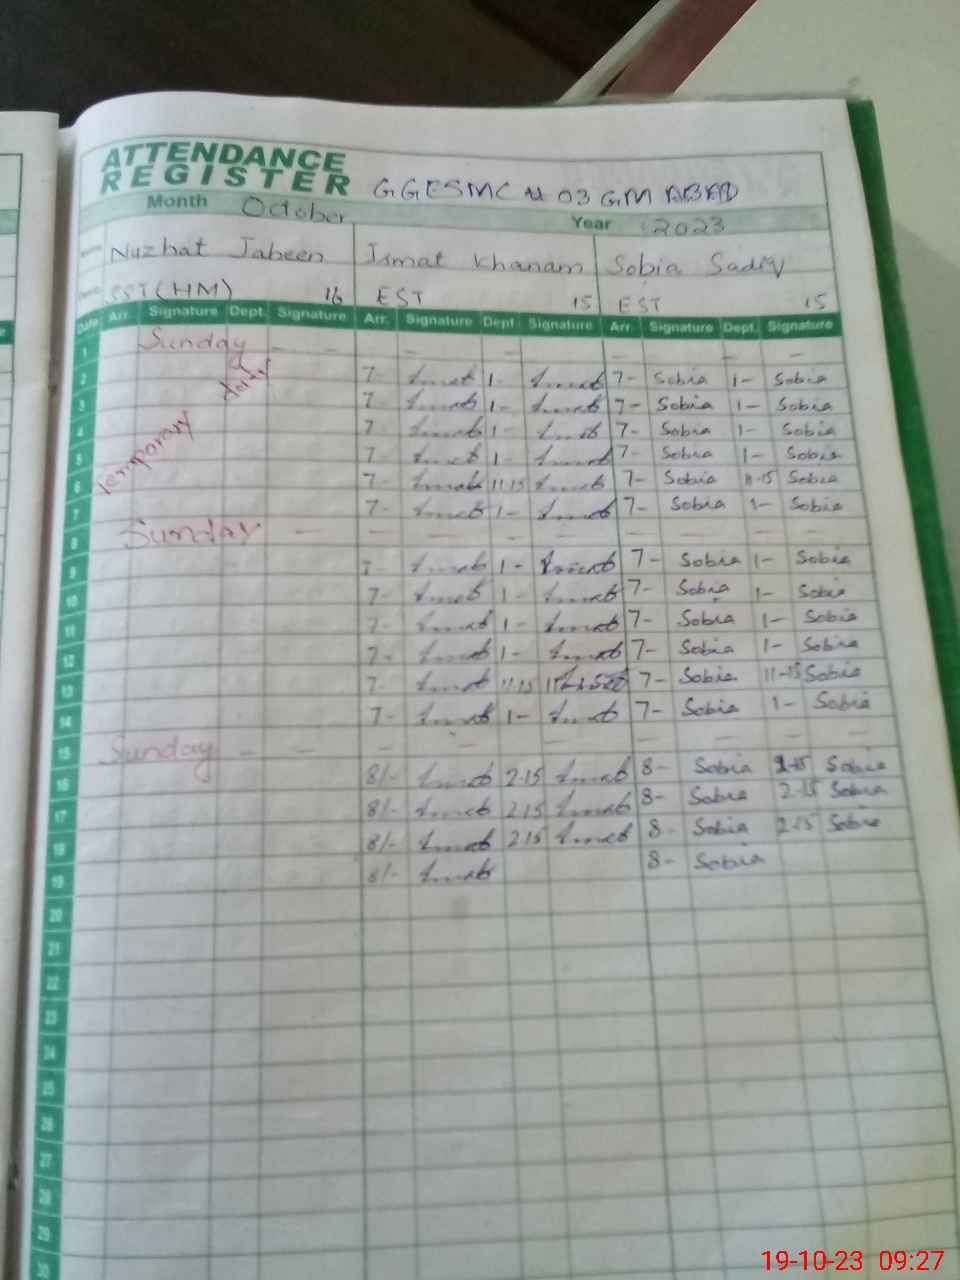 ATTENDANCE
REGISTER GGESMC # 03 GM ABAD
Month October Year 2023
Name Nuzhat Jabeen Ismat Khanam Sobia Sadiq
SST(HM) 16 EST 15 EST 15
Date Arr. Signature Dept. Signature Arr. Signature Dept Signature Arr. Signature Dept. Signature
1 Sunday - - - - - - -
2 7- Ismat 1- Ismat 7- Sobia 1- Sobia
3 7 Ismat 1- Ismat 7- Sobia 1- Sobia
4 7 Ismat 1- Ismat 7- Sobia 1- Sobia
5 Temporary 7 Ismat 1- Ismat 7- Sobia 1- Sobia
6 7- Ismat 11-15 Ismat 7- Sobia 11-15 Sobia
7 7- Ismat 1- Ismat 7- Sobia 1- Sobia
8 Sunday - - - - - - - - -
9 7- Ismat 1- Ismat 7- Sobia 1- Sobia
10 7- Ismat 1- Ismat 7- Sobia 1- Sobia
11 7- Ismat 1- Ismat 7- Sobia 1- Sobia
12 7- Ismat 1- Ismat 7- Sobia 1- Sobia
13 7- Ismat 11.15 7- Sobia 11-15 Sobia
14 7- Ismat 1- Ismat 7- Sobia 1- Sobia
15 Sunday - - - - - - - - -
16 8/- Ismat 2.15 Ismat 8- Sobia 2-15 Sobia
17 8/- Ismat 215 Ismat 8- Sobia 2-15 Sobia
18 8/- Ismat 215 Ismat 8- Sobia 2-15 Sobia
19 8/- Ismat 8- Sobia
20
21
22
23
24
25
26
27
28
29
30
19-10-23 09:27